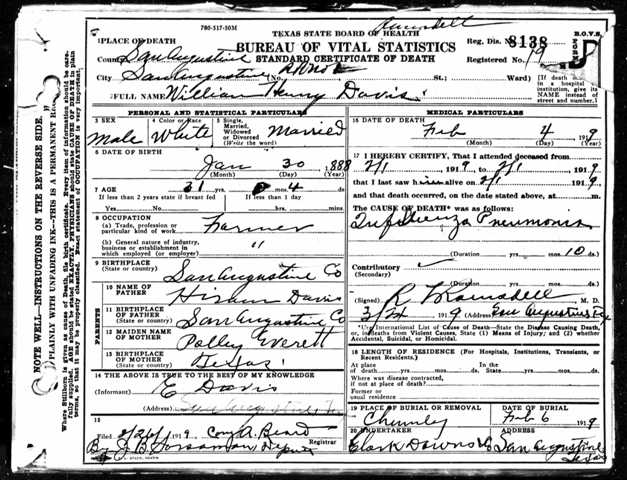 780-517-50M
TEXAS STATE BOARD OF HEALTH
BUREAU OF VITAL STATISTICS
STANDARD CERTIFICATE OF DEATH
Reg. Dis. No. 8138
B.O.V.S.
Registered No. 19
1 PLACE OF DEATH
County San Augustine
City San Augustine (No. St.; Ward)
[If death in a hospital or institution, give its NAME instead of street and number.]
2 FULL NAME William Henry Davis
PERSONAL AND STATISTICAL PARTICULARS
3 SEX Male
4 Color or Race White
5 Single, Married, Widowed or Divorced (Write the word) Married
6 DATE OF BIRTH
Jan 30 1888
(Month) (Day) (Year)
7 AGE 31 yrs. 0 mos. 4 ds.
If less than 2 years state if breast fed
If less than 1 day
Yes No hrs. min.
8 OCCUPATION
(a) Trade, profession or particular kind of work Farmer
(b) General nature of industry, business or establishment in which employed (or employer) "
9 BIRTHPLACE (State or country) San Augustine Co
PARENTS
10 NAME OF FATHER Hiram Davis
11 BIRTHPLACE OF FATHER (State or country) San Augustine Co
12 MAIDEN NAME OF MOTHER Polley Everett
13 BIRTHPLACE OF MOTHER (State or country) Texas
14 THE ABOVE IS TRUE TO THE BEST OF MY KNOWLEDGE
(Informant) E Davis
(Address)
15
Filed 1919
Registrar
By Deputy
MEDICAL PARTICULARS
16 DATE OF DEATH
Feb 4 1919
(Month) (Day) (Year)
17 I HEREBY CERTIFY, That I attended deceased from
2/1 1919 to 2/1 1919
that I last saw him alive on 2/1 1919
and that death occurred, on the date stated above, at m.
The CAUSE OF DEATH* was as follows:
Influenza Pneumonia
(Duration yrs. mos. 10 ds.
Contributory
(Secondary)
(Duration yrs. mos. ds.
(Signed) M. D.
1919 (Address) San Augustine Tex
*Use International List of Cause of Death—State the Disease Causing Death, or, in deaths from Violent Causes, State (1) Means of Injury; and (2) whether Accidental, Suicidal, or Homicidal.
18 LENGTH OF RESIDENCE (For Hospitals, Institutions, Transients, or Recent Residents.)
At place of death yrs. mos. ds. In the State yrs. mos. ds.
Where was disease contracted, if not at place of death?
Former or usual residence
19 PLACE OF BURIAL OR REMOVAL
Chumley
DATE OF BURIAL
Feb 6 1919
20 UNDERTAKER
Clark Downs
ADDRESS
San Augustine Texas
NOTE WELL—INSTRUCTIONS ON THE REVERSE SIDE.
PLAINLY WITH UNFADING INK—THIS IS A PERMANENT